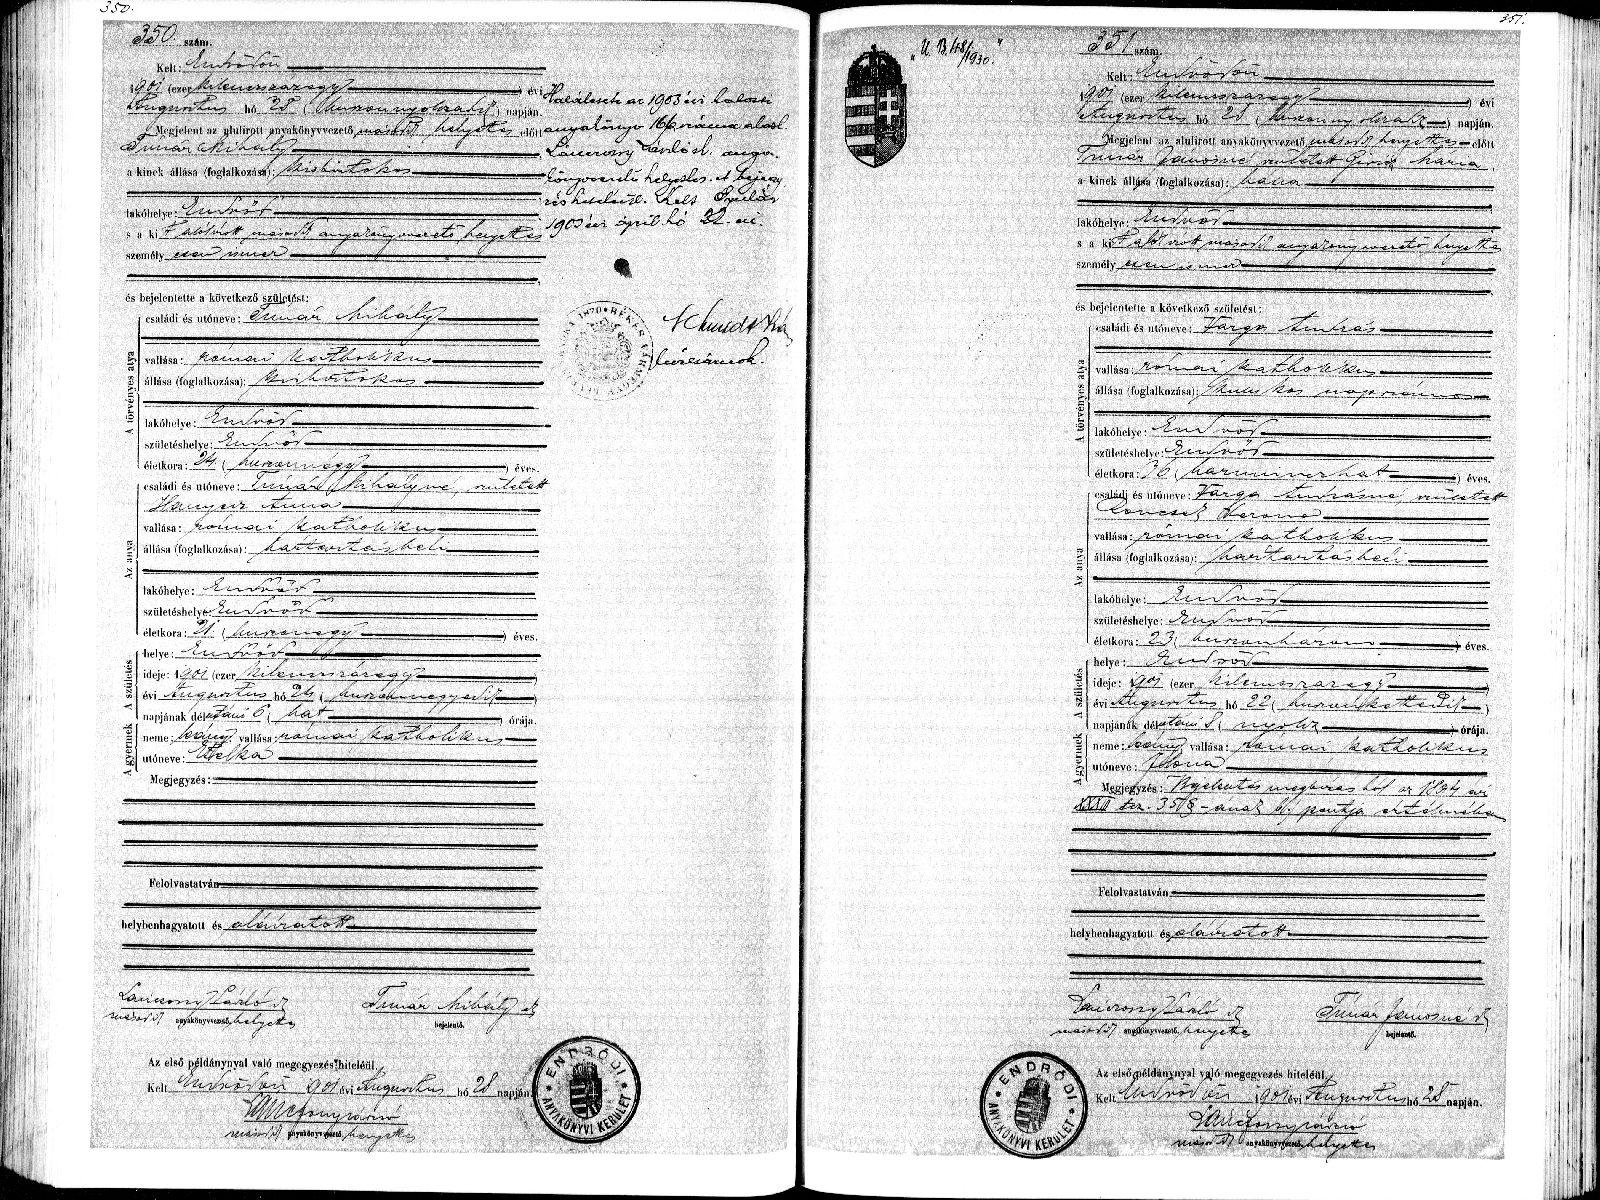 350.
350 szám.
Kelt: Endrődön
1901 (ezer kilenczszázegy) évi
Augusztus hó 28 (huszonnyolczadik) napján.
Megjelent az alulirott anyakönyvvezető másod helyettes előtt
Timár Mihály
a kinek állása (foglalkozása): kisbirtokos
lakóhelye: Endrőd
s a kit alólirott másod anyakönyvvezető helyettes
személyesen ismer
és bejelentette a következő születést:
A törvényes atya
családi és utóneve: Timár Mihály
vallása: római katholikus
állása (foglalkozása): kisbirtokos
lakóhelye: Endrőd
születéshelye: Endrőd
életkora: 24 (huszonnégy) éves.
Az anya
családi és utóneve: Timár Mihályné, született
Hanyecz Anna
vallása: római katholikus
állása (foglalkozása): háztartásbeli
lakóhelye: Endrőd
születéshelye: Endrőd
életkora: 21 (huszonegy) éves.
A születés
helye: Endrőd
ideje: 1901 (ezer kilenczszázegy)
évi Augusztus hó 24 (huszonnegyedik)
napjának délutáni 6 (hat) órája.
A gyermek
neme: leány vallása: római katholikus
utóneve: Etelka
Megjegyzés:
Felolvastatván
helybenhagyatott és aláiratott
másod anyakönyvvezető helyettes
Timár Mihály
bejelentő.
Az első példánynyal való megegyezés hiteléül.
Kelt Endrődön 1901 évi Augusztus hó 28 napján.
másod anyakönyvvezető helyettes
ENDRŐDI ANYAKÖNYVI KERÜLET
Halálesete az 1903 évi halotti
anyakönyv 166 száma alatt.
László anya-
könyvvezető helyettes. A bejegy-
zés hiteléül. Kelt Gyulán
1903 évi ápril hó 22-én.
351.
„U. B. 48/1930."
351 szám.
Kelt: Endrődön
1901 (ezer kilenczszázegy) évi
Augusztus hó 28 (huszonnyolczadik) napján.
Megjelent az alulirott anyakönyvvezető másod helyettes előtt
Timár Jánosné született Mária
a kinek állása (foglalkozása): bába
lakóhelye: Endrőd
s a kit alólirott másod anyakönyvvezető helyettes
személyesen ismer
és bejelentette a következő születést:
A törvényes atya
családi és utóneve: Varga András
vallása: római katholikus
állása (foglalkozása): napszámos
lakóhelye: Endrőd
születéshelye: Endrőd
életkora: 36 (harminczhat) éves.
Az anya
családi és utóneve: Varga Andrásné, született
vallása: római katholikus
állása (foglalkozása): háztartásbeli
lakóhelye: Endrőd
születéshelye: Endrőd
életkora: 23 (huszonhárom) éves.
A születés
helye: Endrőd
ideje: 1901 (ezer kilenczszázegy)
évi Augusztus hó 22 (huszonkettedik)
napjának délutáni 8 (nyolcz) órája.
A gyermek
neme: leány vallása: római katholikus
utóneve: Ilona
Megjegyzés: Bejelentés megbizásból az 1894 évi
XXXIII tcz. 35 §-ának b/ pontja értelmében
Felolvastatván
helybenhagyatott és aláiratott
másod anyakönyvvezető helyettes
Timár Jánosné
bejelentő.
Az első példánynyal való megegyezés hiteléül.
Kelt Endrődön 1901 évi Augusztus hó 28 napján.
másod anyakönyvvezető helyettes
ENDRŐDI ANYAKÖNYVI KERÜLET